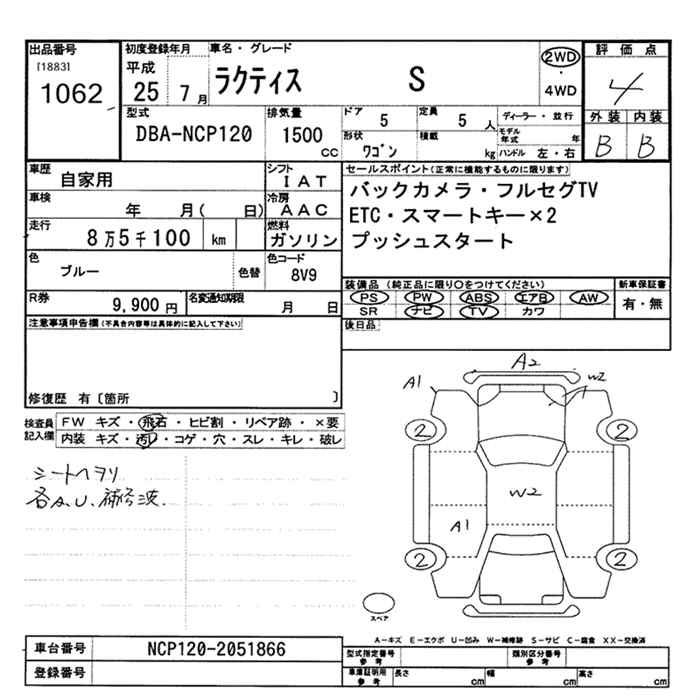 出品番号
[1883]
1062
初度登録年月
平成
25 7月
車名・グレード
ラクティス S
2WD
・
4WD
評価点
4
外装 内装
B B
型式
DBA-NCP120
排気量
1500
cc
ドア
5
定員
5 人
形状
ワゴン
積載
kg
ディーラー・並行
モデル年式 年
ハンドル 左・右
車歴
自家用
シフト
IAT
車検
年 月( 日)
冷房
AAC
走行
8万5千100 km
燃料
ガソリン
色
ブルー
色替
色コード
8V9
R券
9,900 円
名変通知期限
月 日
セールスポイント(正常に機能するものに限ります)
バックカメラ・フルセグTV
ETC・スマートキー×2
プッシュスタート
装備品(純正品に限り○をつけてください)
PS PW ABS エアB AW
SR ナビ TV カワ
新車保証書
有・無
後日品
注意事項申告欄(不具合内容等は具体的に記入して下さい)
修復歴 有〔箇所 〕
検査員
記入欄
FW キズ・飛石・ヒビ割・リペア跡・×要
内装 キズ・汚レ・コゲ・穴・スレ・キレ・破レ
シートヘタリ
各A.U.補修波
A2
A1
W2
2
2
W2
A1
2
2
スペア
A−キズ E−エクボ U−凹み W−補修跡 S−サビ C−腐食 XX−交換済
車台番号 NCP120-2051866
登録番号
型式指定番号
参考
類別区分番号
参考
車庫証明用
参考
長さ cm
幅 cm
高さ cm